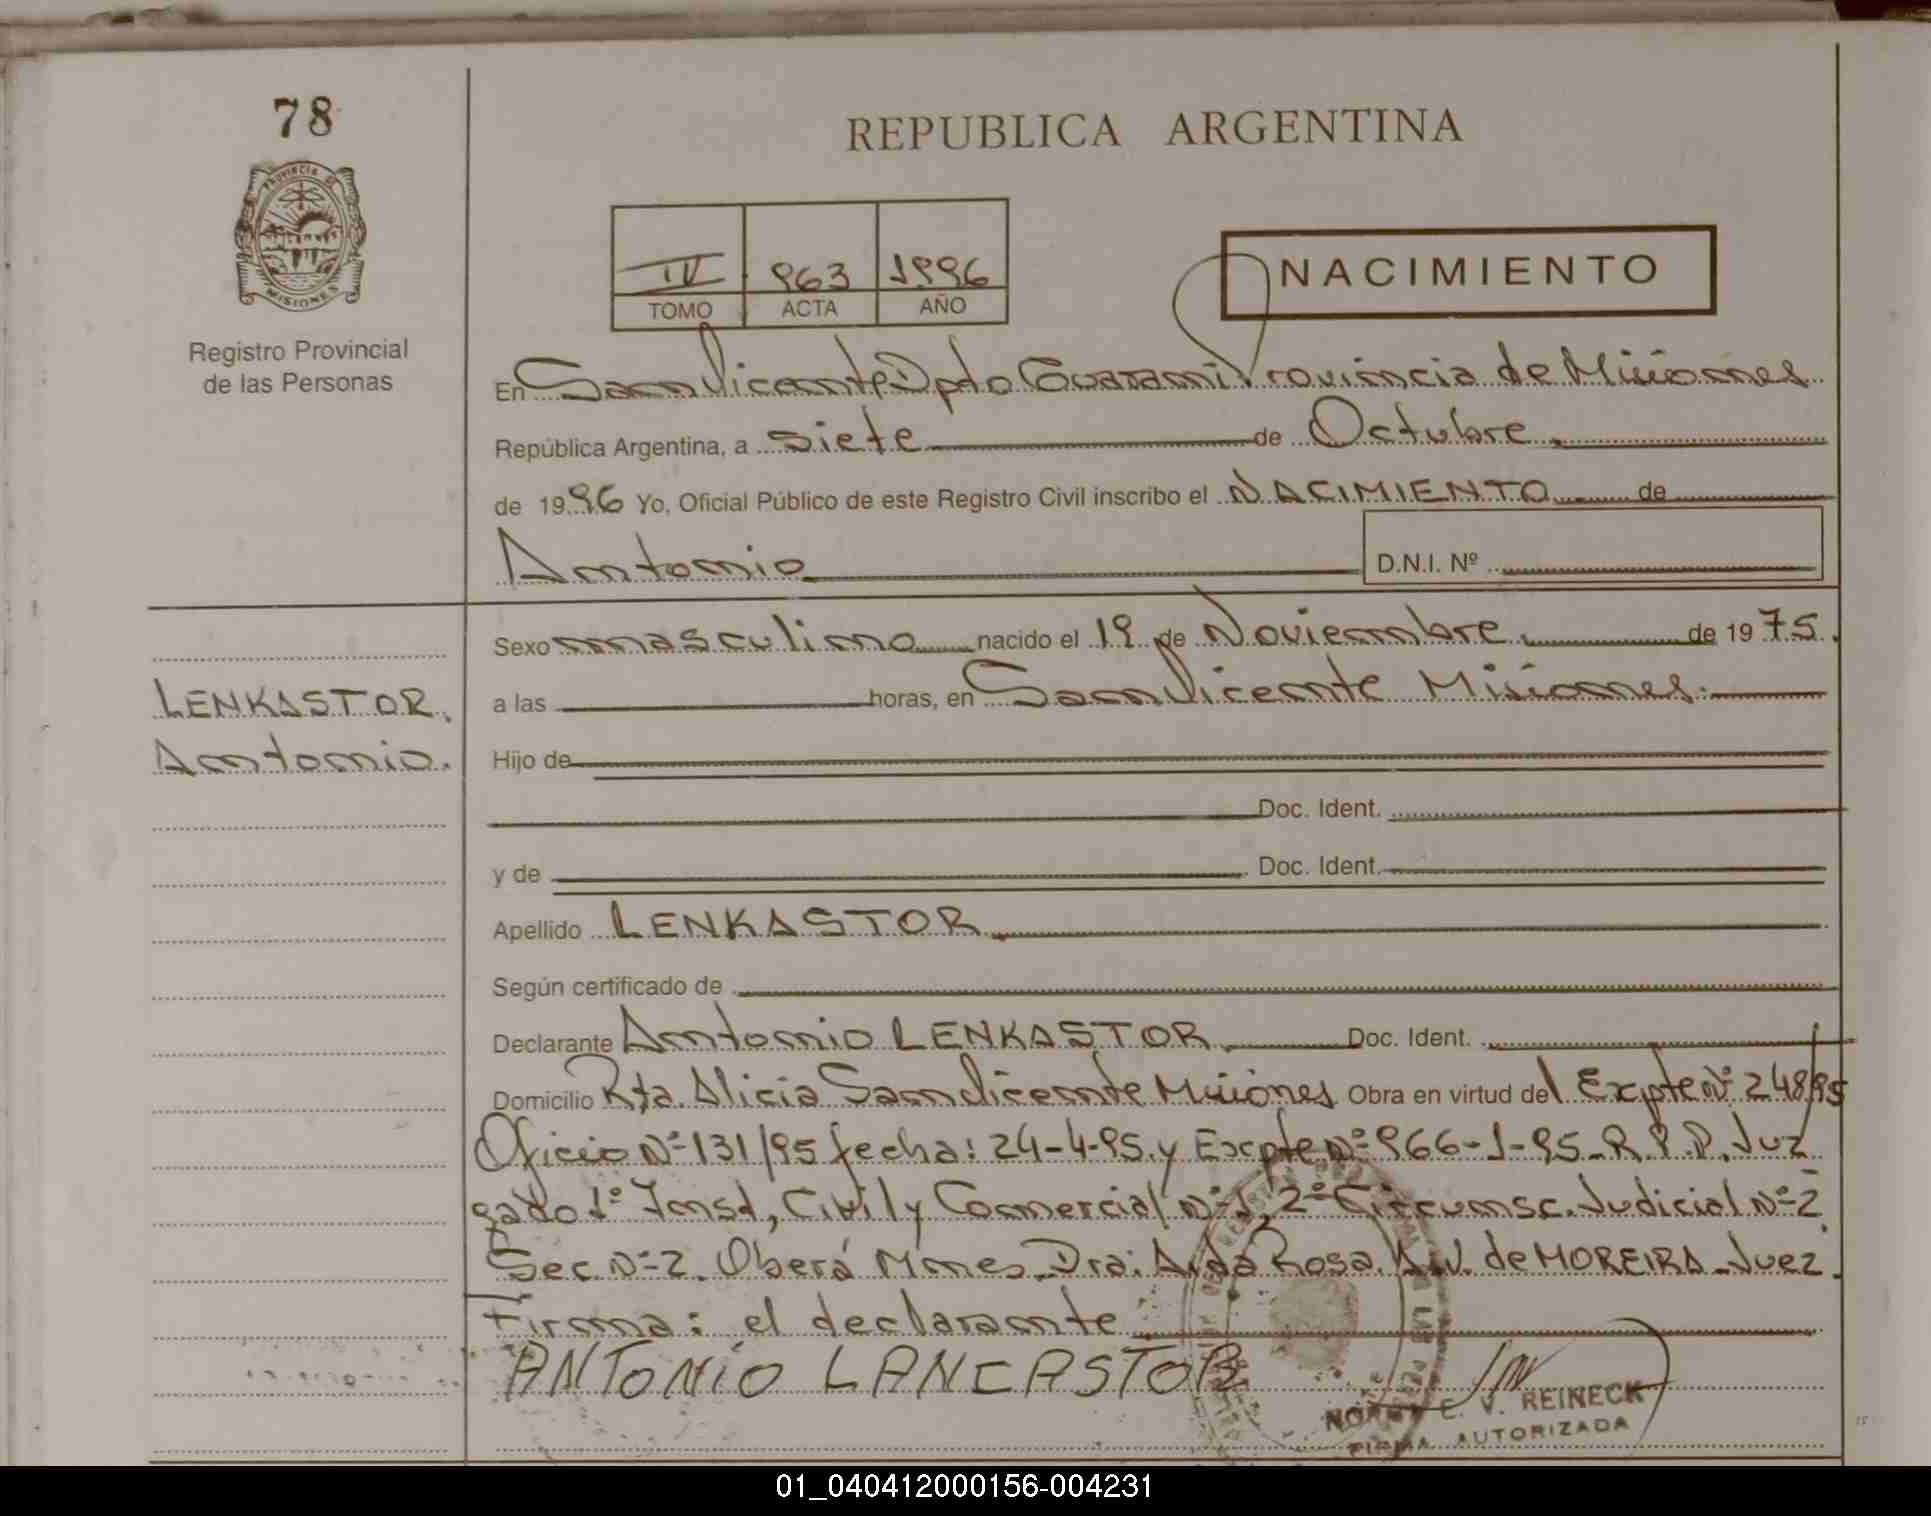 78
REPUBLICA ARGENTINA
PROVINCIA DE
MISIONES
Registro Provincial
de las Personas
IV 963 1996
TOMO ACTA AÑO
NACIMIENTO
En San Vicente Dpto Guarani Provincia de Misiones
República Argentina, a siete de Octubre
de 1996 Yo, Oficial Público de este Registro Civil inscribo el NACIMIENTO de
Antonio D.N.I. Nº
Sexo masculino nacido el 19 de Noviembre de 1975.
LENKASTOR,
a las horas, en San Vicente Misiones.
Antonio.
Hijo de
Doc. Ident.
y de Doc. Ident.
Apellido LENKASTOR
Según certificado de
Declarante Antonio LENKASTOR Doc. Ident.
Domicilio Rta. Alicia San Vicente Misiones Obra en virtud del Expte Nº 248/95
Oficio Nº 131/95 fecha: 24-4-95. y Expte Nº 966-J-95-R.P.P. Juz
gado 1º Inst, Civil y Comercial Nº 1, 2º Circunsc. Judicial Nº 2
Sec. Nº 2. Oberá Mnes. Dra: Aida Rosa. A.V. de MOREIRA - Juez.
Firma: el declarante
ANTONIO LANCASTOR
E. V. REINECK
FIRMA AUTORIZADA
01_040412000156-004231